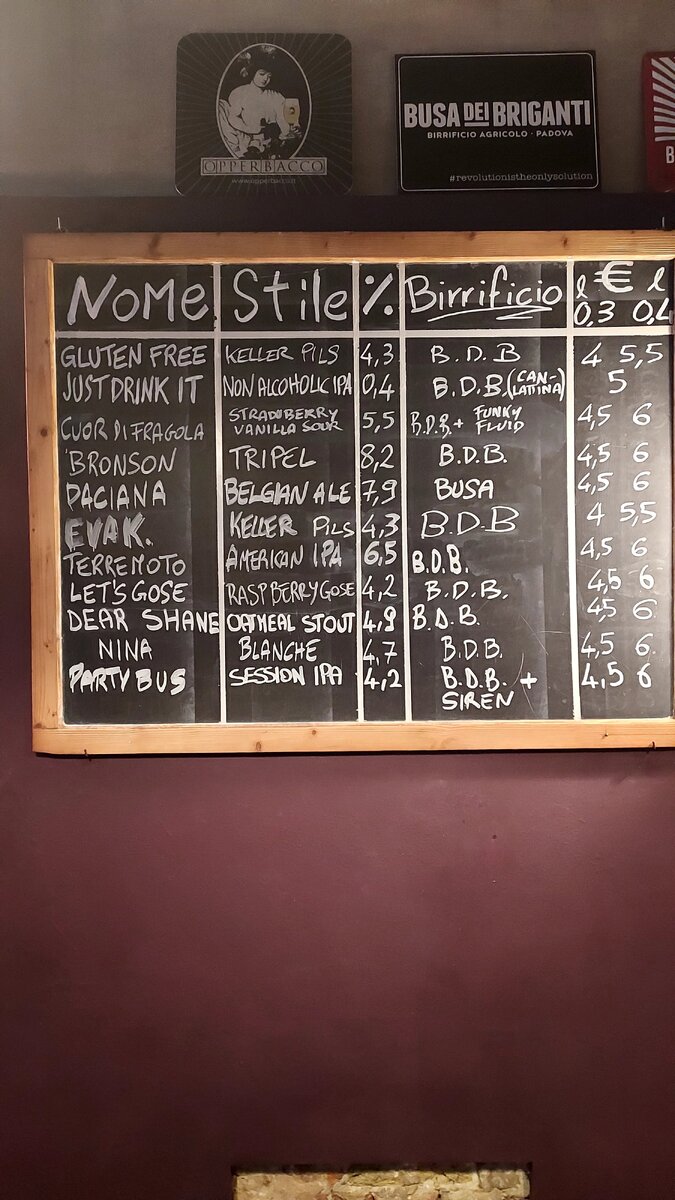 OPPERBACCO
BUSA DEI BRIGANTI
BIRRIFICIO AGRICOLO · PADOVA
#revolutionistheonlysolution
B
NOME Stile % Birrificio € l 0,3 l 0,4
GLUTEN FREE KELLER PILS 4,3 B.D.B 4 5,5
JUST DRINK IT NON ALCOHOLIC IPA 0,4 B.D.B. (CAN-LATTINA) 5
CUOR DI FRAGOLA STRAWBERRY VANILLA SOUR 5,5 B.D.B. + FUNKY FLUID 4,5 6
BRONSON TRIPEL 8,2 B.D.B. 4,5 6
DACIANA BELGIAN ALE 7,9 BUSA 4,5 6
EVAK. KELLER PILS 4,3 B.D.B 4 5,5
TERREMOTO AMERICAN IPA 6,5 B.D.B. 4,5 6
LET'S GOSE RASPBERRY GOSE 4,2 B.D.B. 4,5 6
DEAR SHANE OATMEAL STOUT 4,9 B.D.B. 4,5 6
NINA BLANCHE 4,7 B.D.B. 4,5 6
PARTY BUS SESSION IPA 4,2 B.D.B. + SIREN 4,5 6